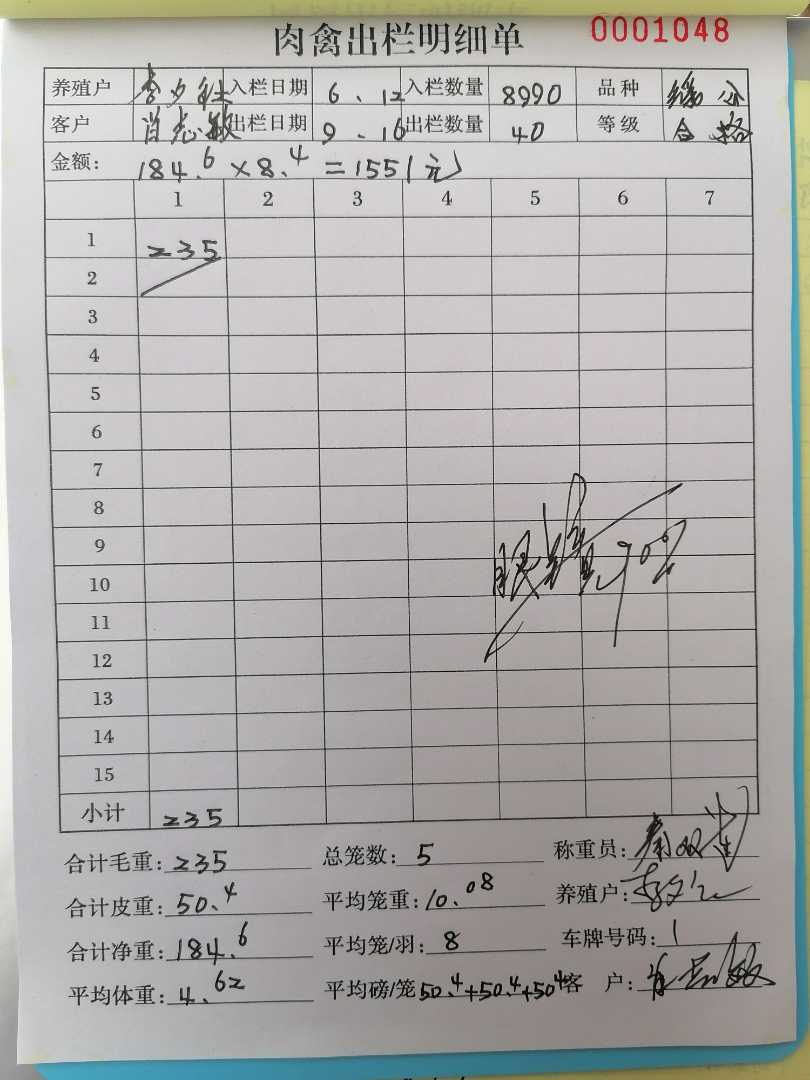 肉禽出栏明细单 0001048
养殖户 李 入栏日期 6.12 入栏数量 8990 品种
客户 肖志敏 出栏日期 9.16 出栏数量 40 等级 合格
金额: 184.6×8.4=1551元
1 2 3 4 5 6 7
1 235
2
3
4
5
6
7
8
9
90%
10
11
12
13
14
15
小计 235
合计毛重: 235 总笼数: 5 称重员:
合计皮重: 50.4 平均笼重: 10.08 养殖户:
合计净重: 184.6 平均笼/羽: 8 车牌号码: 1
平均体重: 4.62 平均磅/笼 50.4+50.4+50.4 客 户: 肖志敏